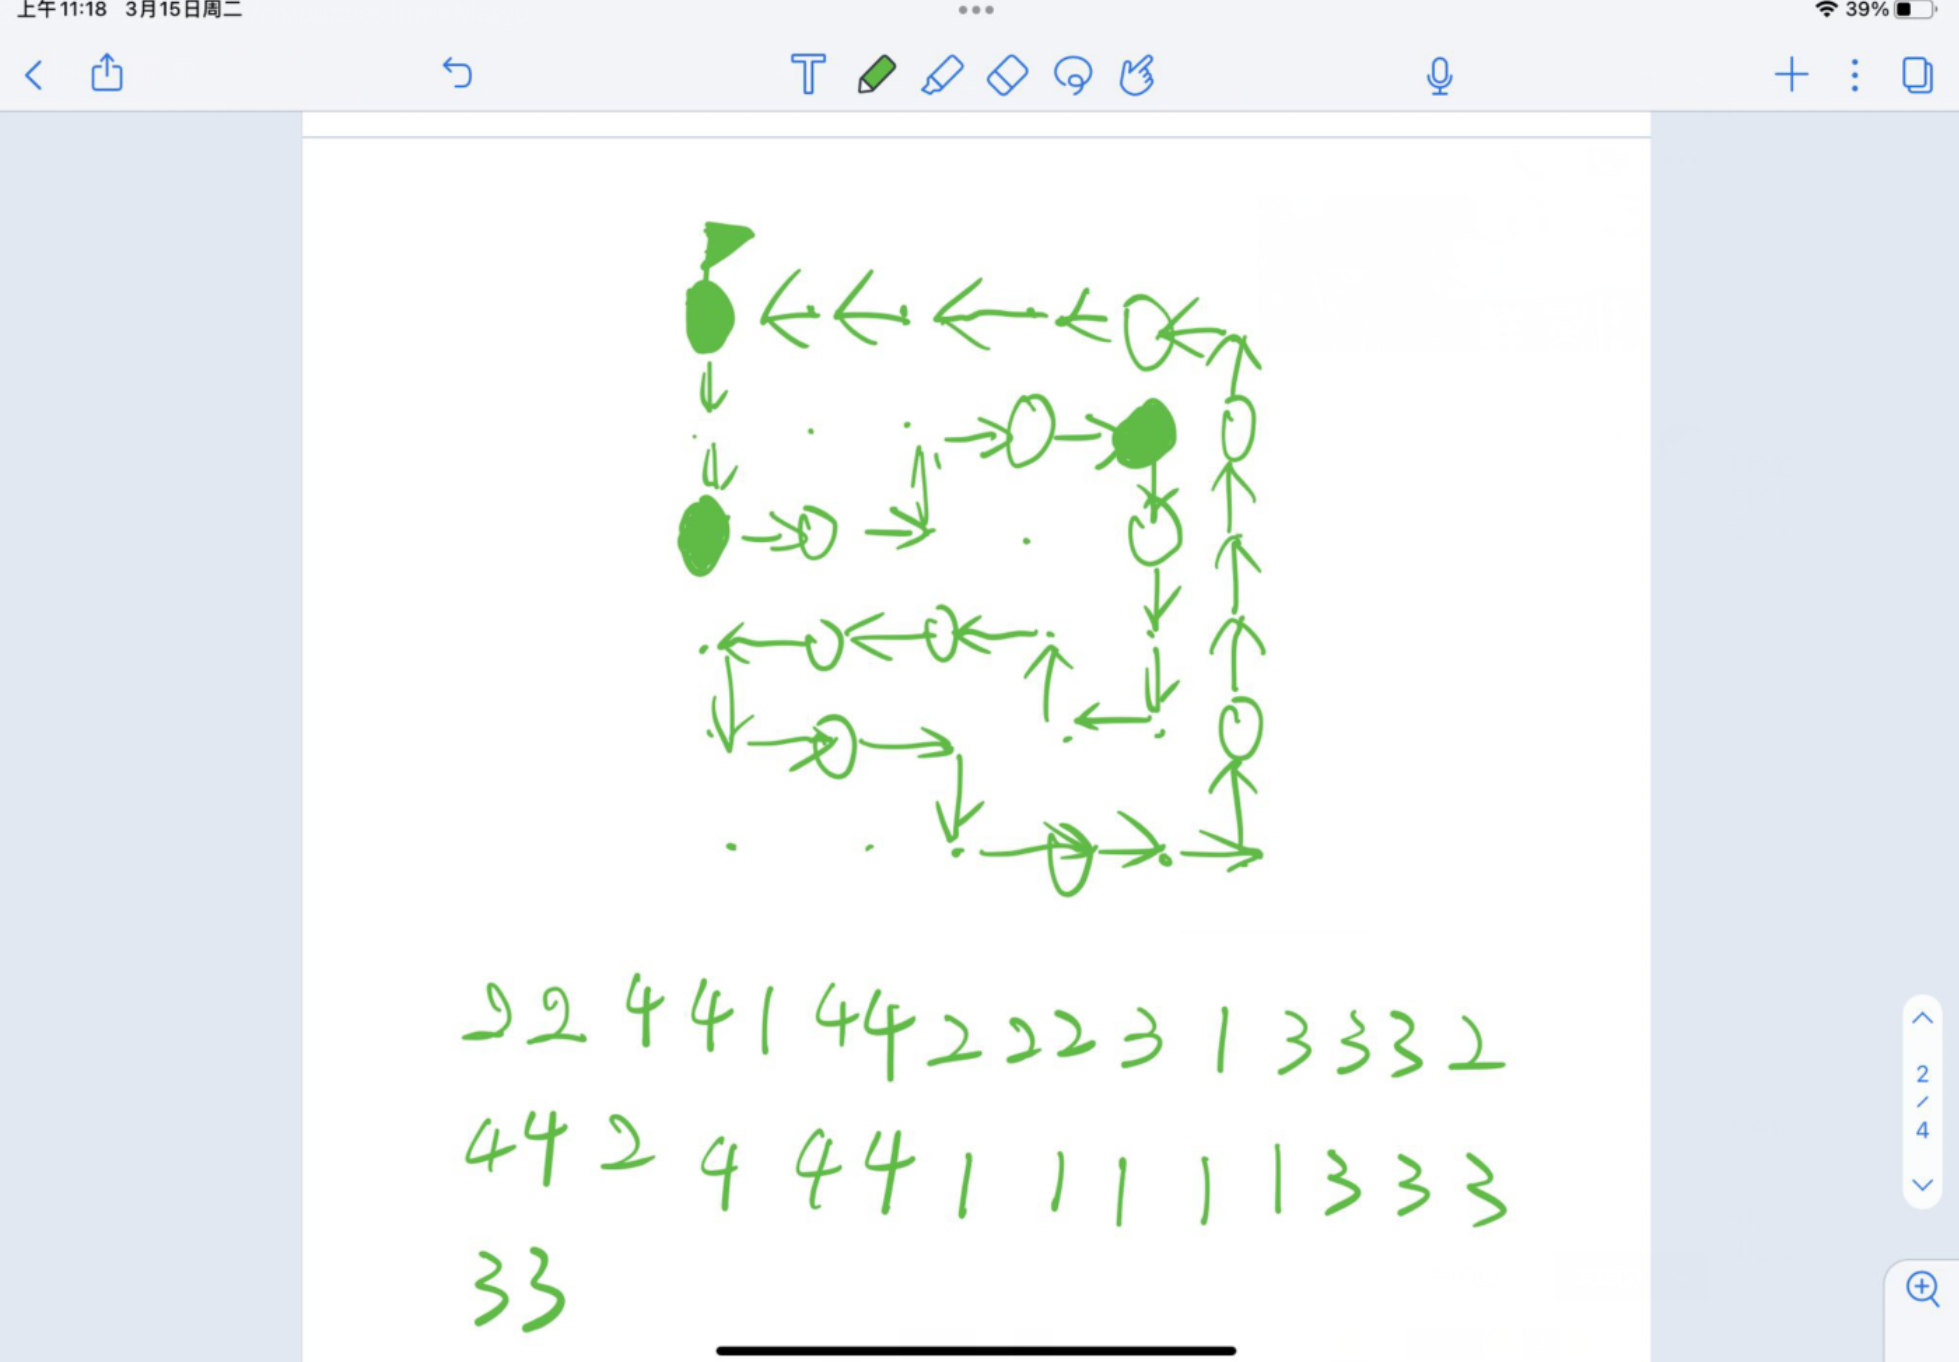 上午11:18 3月15日周二 39%
T
2244144222313332
44244411111333
33
2
/
4